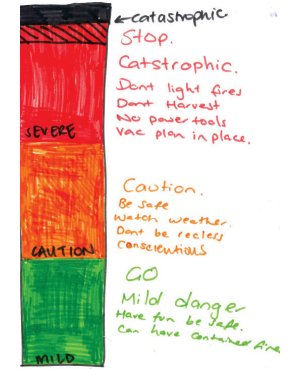 ←catastrophic
Stop.
Catstrophic.
Dont light fires
Dont Harvest
No power tools
Vac plan in place.
SEVERE
Caution.
Be safe
Watch weather.
Dont be recless
Conscientious
CAUTION
GO
Mild danger
Have fun be safe.
Can have contained fires
MILD